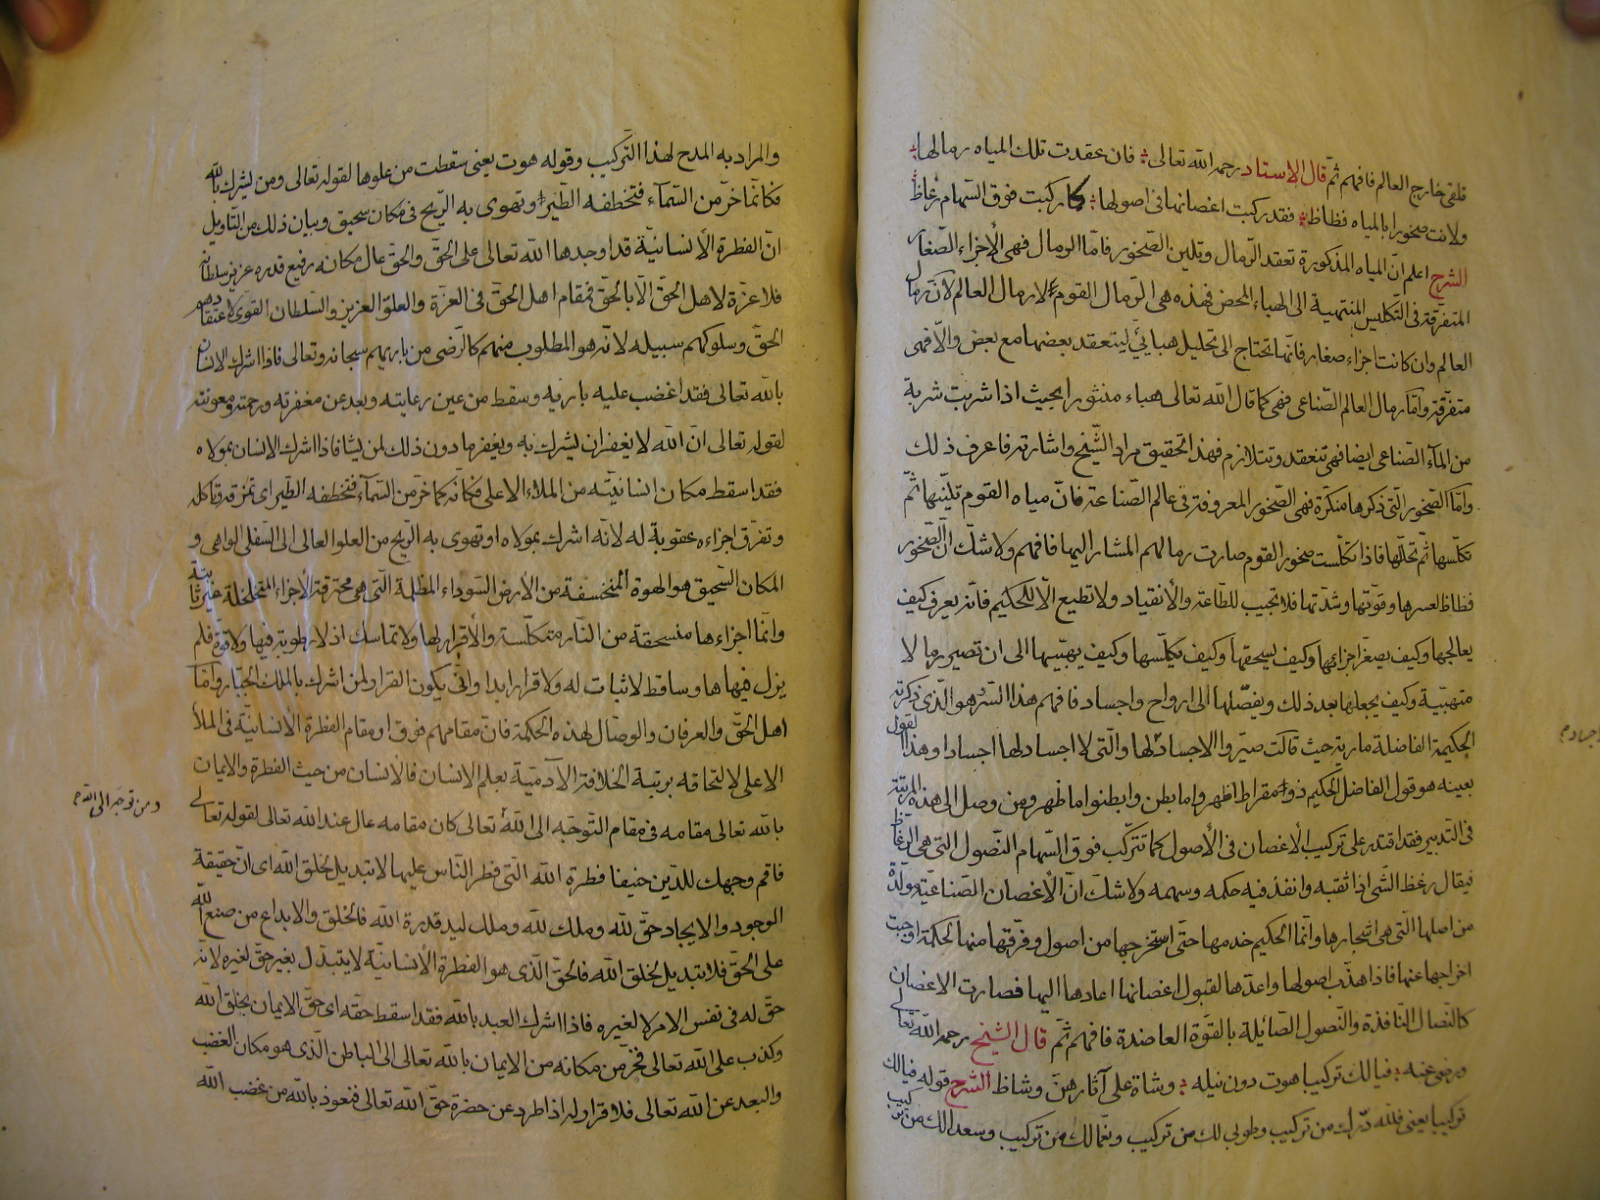 فلقى خارج العالم فافهم ثم قال الاستاد رحمه الله تعالى فان عقدت تلك المياه رمالها
ولانت صخورا بالمياه فظاظ فقد ركبت اغصانها فى اصولها كما ركبت فوق السهام رعاظ
الشرح اعلم ان المياه المذكورة تعقد الرمال وتلين الصخور فاما الرمال فهى الاجزاء الصغار
المتفرقة فى التكليس المنتهية الى الهباء المحض فهذه هى الرمال القوم لا رمال العالم لان رمال
العالم وان كانت اجزاء صغار فانها تحتاج الى تحليل هبائي ليتعقد بعضها مع بعض والا فهى
متفرقة واما رمال العالم الصناعى فهى كما قال الله تعالى هباء منثورا بحيث اذا شربت شربة
من الماء الصناعى ايضا فهى تنعقد وتتلازم فهذا تحقيق مراد الشيخ واشارته فاعرف ذلك
واما الصخور التى ذكرها منكرة فهى الصخور المعروفة فى عالم الصناعة فان مياه القوم تلينها ثم
تكلسها ثم تحلها فاذا تكلست صخور القوم صارت رمالهم المشار اليها فافهم ولا شك ان الصخور
فظاظ لعسرها وقوتها وشدتها فلا تجيب للطاعة والانقياد ولا تطيع الا للحكيم فانه يعرف كيف
يعالجها وكيف يصغر اجزائها وكيف يسحقها وكيف يكلسها وكيف يهبيها الى ان تصير رمالا
متهبية وكيف يجعلها بعد ذلك ويفصلها الى ارواح واجساد فافهم هذا السر هو الذى ذكرته
الحكيمة الفاضلة مارية حيث قالت صيروا الاجساد لها والتى لا اجساد لها اجسادا وهذا لقول
بعينه هو قول الفاضل الحكيم ذومقراط اظهروا ما بطن وابطنوا ما ظهر ومن وصل الى هذه المرتبة
فى التدبير فقد اقتدر على تركيب الاغصان فى الاصول كما تتركب فوق السهام النصول التى هى الرعاظ
فيقال رعظ الشئ اذا ثقبه وانفذ فيه حكمه وسهمه ولا شك ان الاغصان الصناعية مولدة
من اصلها التى هى اشجارها وانما الحكيم خدمها حتى استخرجها من اصول وفرقتها منها الحكمة اوجبت
اخراجها عنها فاذا هذب اصولها واعدها لقبول اغصانها اعادها اليها فصارت الاغصان
كالنصال النافذة والنصول الصائلة بالقوة العاضدة فافهم ثم قال الشيخ رحمه الله تعالى
ورضى عنه فيالك تركيبا هوت دون نيله وشاة على آثارهن وشاظ الشرح قوله فيالك
تركيبا يعنى فلله درك من تركيب وطوبى لك من تركيب ونعمالك من تركيب وسعدالك من تركيب
والمراد به المدح لهذا التركيب وقوله هوت يعنى سقطت من علوها لقوله تعالى ومن يشرك بالله
فكأنما خر من السماء فتخطفه الطير او تهوى به الريح فى مكان سحيق وبيان ذلك من التاويل
ان الفطرة الانسانية قد اوجدها الله تعالى على الحق والحق عال مكانه رفيع قدره عزيز سلطانه
فلا عزة لاهل الحق الا بالحق فمقام اهل الحق فى العزة والعلو العزيز والسلطان القوى لاعتقادهم
الحق وسلوكهم سبيله لانه هو المطلوب منهم كالرضى من باريهم سبحانه وتعالى فاذا اشرك الانسان
بالله تعالى فقد اغضب عليه باريه وسقط من عين رعايته وبعد عن مغفرته ورحمته ومعونته
لقوله تعالى ان الله لا يغفر ان يشرك به ويغفر ما دون ذلك لمن يشا فاذا اشرك الانسان بمولاه
فقد اسقط مكان انسانيته من الملاء الاعلى فكأنه كما خر من السماء فتخطفه الطير اى تمزقه تاكله
وتفرق اجزاءه عقوبة له لانه اشرك بمولاه او تهوى به الريح من العلو العالى الى السفلى الواهى و
المكان السحيق هو الهوة المنخسفة من الارض السوداء المظلمة التى هى محترقة الاجزاء المتخلخلة غير ثابتة
وانما اجزاءها منسحقة من النار متكلسة ولا قرار لها ولا تماسك اذ لا رطوبة فيها ولا قوة فلم
يزل فيها هاو ساقط لا ثبات له ولا قرار ابدا وانى يكون القرار لمن اشرك بالملك الجبار واما
اهل الحق والعرفان والوصال لهذه الحكمة فان مقامهم فوق او مقام الفطرة الانسانية فى الملأ
الاعلى لالتحاقه برتبة الخلافة الآدمية بعلم الانسان فالانسان من حيث الفطرة والايمان
بالله تعالى مقامه فى مقام التوجه الى الله تعالى كان مقامه عال عند الله تعالى لقوله تعالى
ومن توجه الى الله
فاقم وجهك للدين حنيفا فطرة الله التى فطر الناس عليها لا تبديل لخلق الله اى ان حقيقة
الوجود والايجاد حق لله وملك لله وملك ليد قدرة الله فالخلق والابداع من صنع الله
على الحق فلا تبديل لخلق الله فالحق الذى هو الفطرة الانسانية لا يتبدل بغير حق لغيره لانه
حق له فى نفس الامر لا لغيره فاذا اشرك العبد بالله فقد اسقط حقه اى حق الايمان بخلق الله
وكذب على الله تعالى فخر من مكانه من الايمان بالله تعالى الى الباطن الذى هو مكان الغضب
والبعد عن الله تعالى فلا قرار له اذا طرد عن حضرة حق الله تعالى فنعوذ بالله من غضب الله